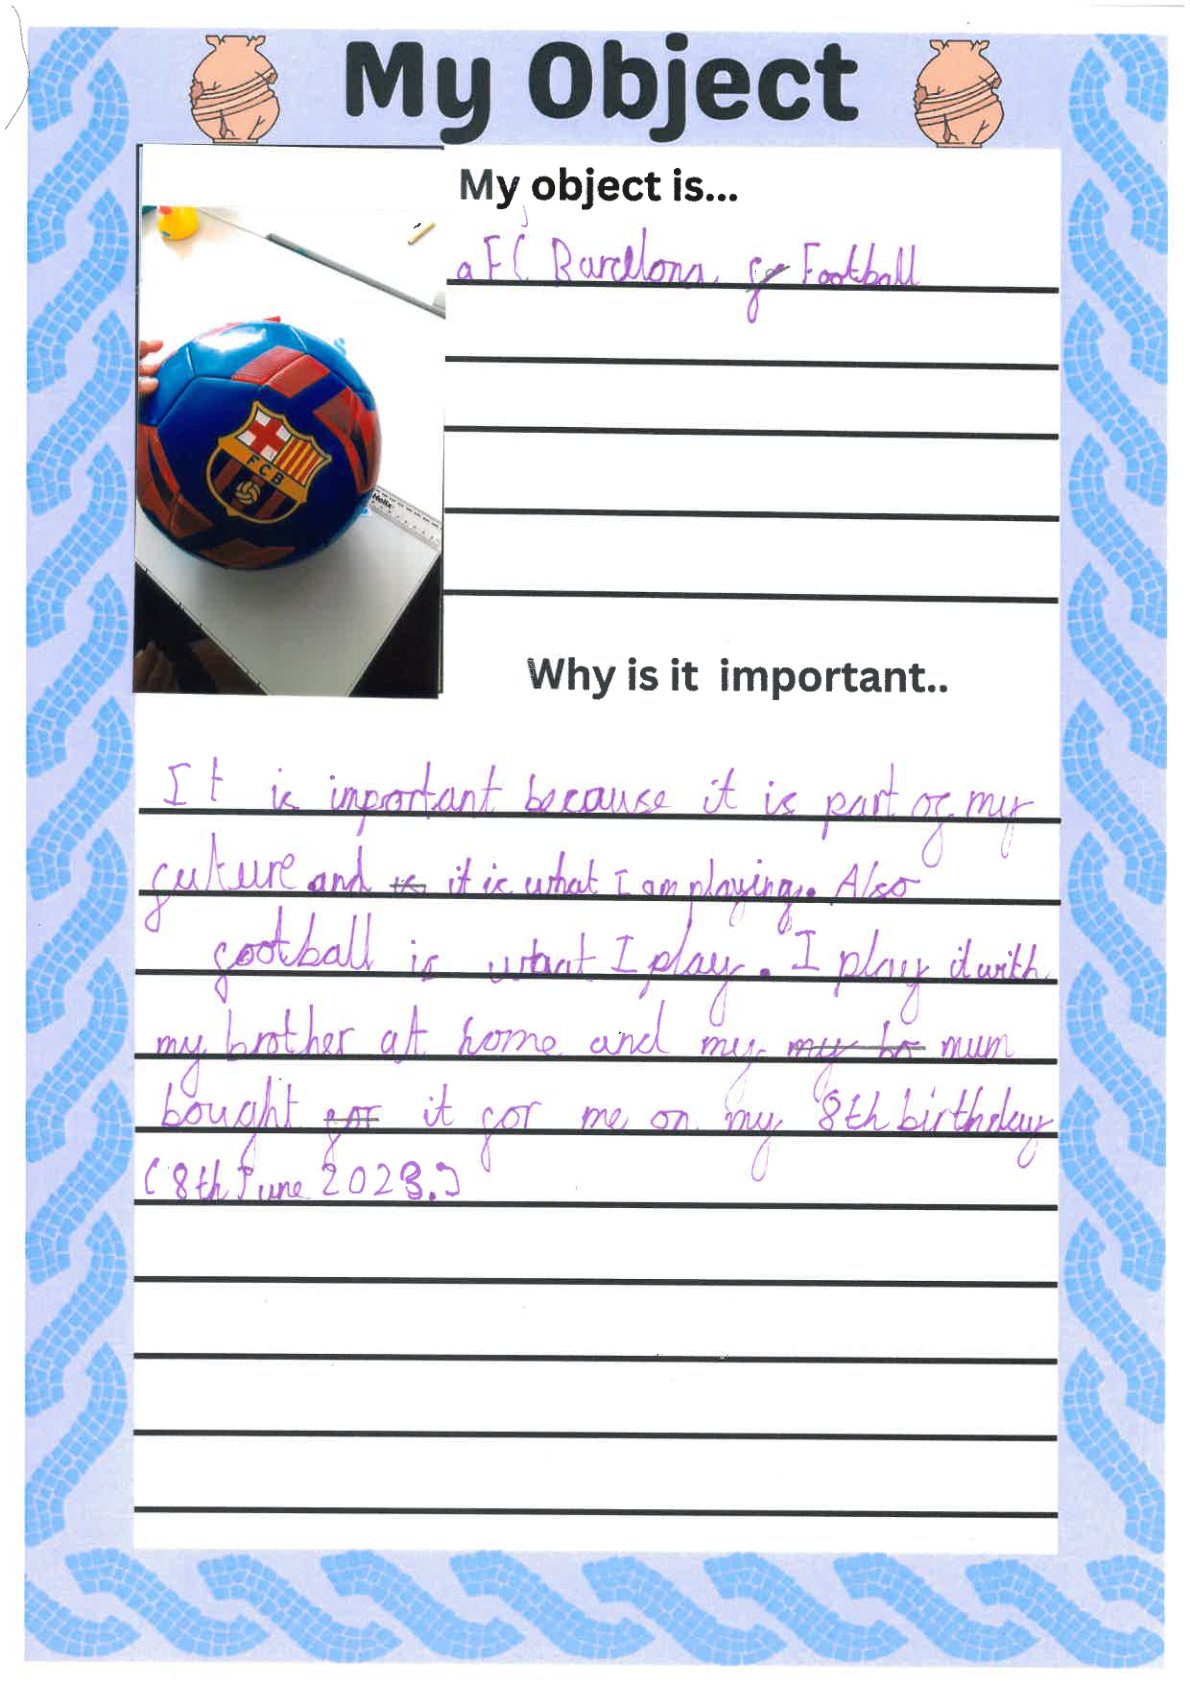 My Object
My object is...
a FC Barcelona Football
FCB
Helix
Why is it important..
It is inportant because it is part of my
future and it is what I am playing. Also
football is what I play. I play it with
my brother at home and my mum
bought it for me on my 8th birthday
(8th June 2023.)